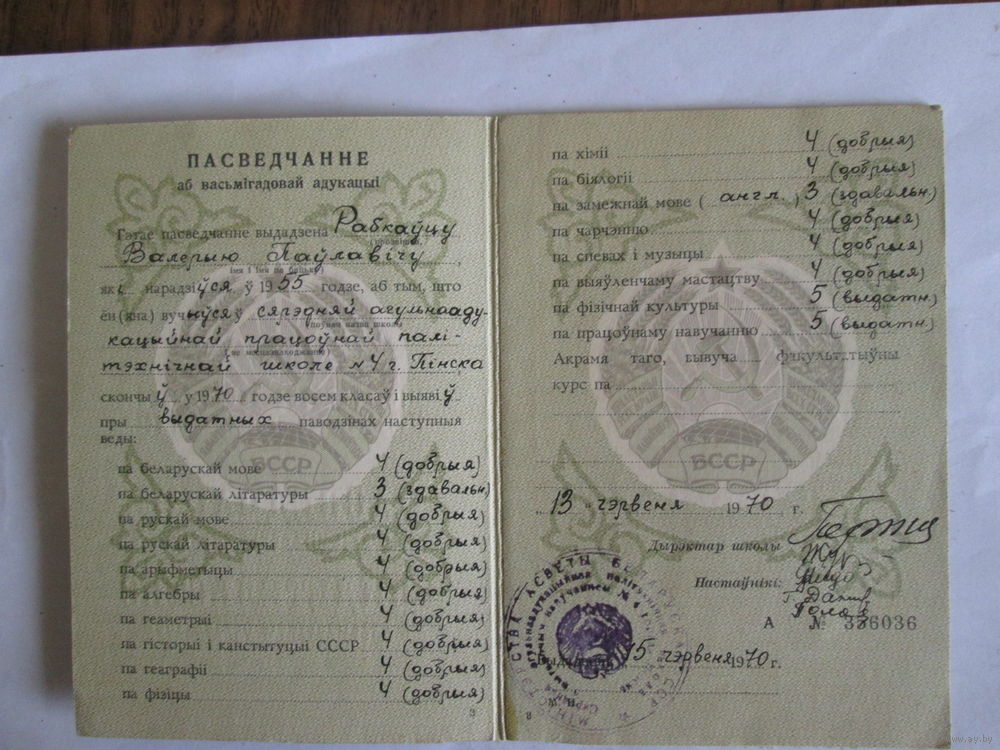 ПАСВЕДЧАННЕ
аб васьмігадовай адукацыі
Гэтае пасведчанне выдадзена Рабкаўцу
(прозвішча,
Валерыю Паўлавічу
імя і імя па бацьку)
які нарадзіўся ў 1955 годзе, аб тым, што
ён(яна) вучыўся ў сярэдняй агульнааду-
(поўная назва школы
кацыйнай працоўнай палі-
і яе месцазнаходжанне)
тэхнічнай школе №4 г. Пінска
скончыў у 1970 годзе восем класаў і выявіў
пры выдатных паводзінах наступныя
веды:
па беларускай мове 4 (добрыя)
па беларускай літаратуры 3 (здавальн)
па рускай мове 4 (добрыя)
па рускай літаратуры 4 (добрыя)
па арыфметыцы 4 (добрыя)
па алгебры 4 (добрыя)
па геаметрыі 4 (добрыя)
па гісторыі і канстытуцыі СССР 4 (добрыя)
па геаграфіі 4 (добрыя)
па фізіцы 4 (добрыя)
3
БССР
па хіміі 4 (добрыя)
па біялогіі 4 (добрыя)
па замежнай мове (англ.) 3 (здавальн.)
па чарчэнню 4 (добрыя)
па спевах і музыцы 4 (добрыя)
па выяўленчаму мастацтву 4 (добрыя)
па фізічнай культуры 5 (выдатн.)
па працоўнаму навучанню 5 (выдатн)
Акрамя таго, вывуча факультатыўны
курс па
БССР
„13" чэрвеня 1970 г.
Дырэктар школы
Настаўнікі:
А № 356036
15 чэрвеня 1970 г.
8
www.ay.by